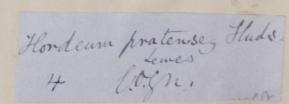 Hordeum pratense, Huds.
Lewes
4